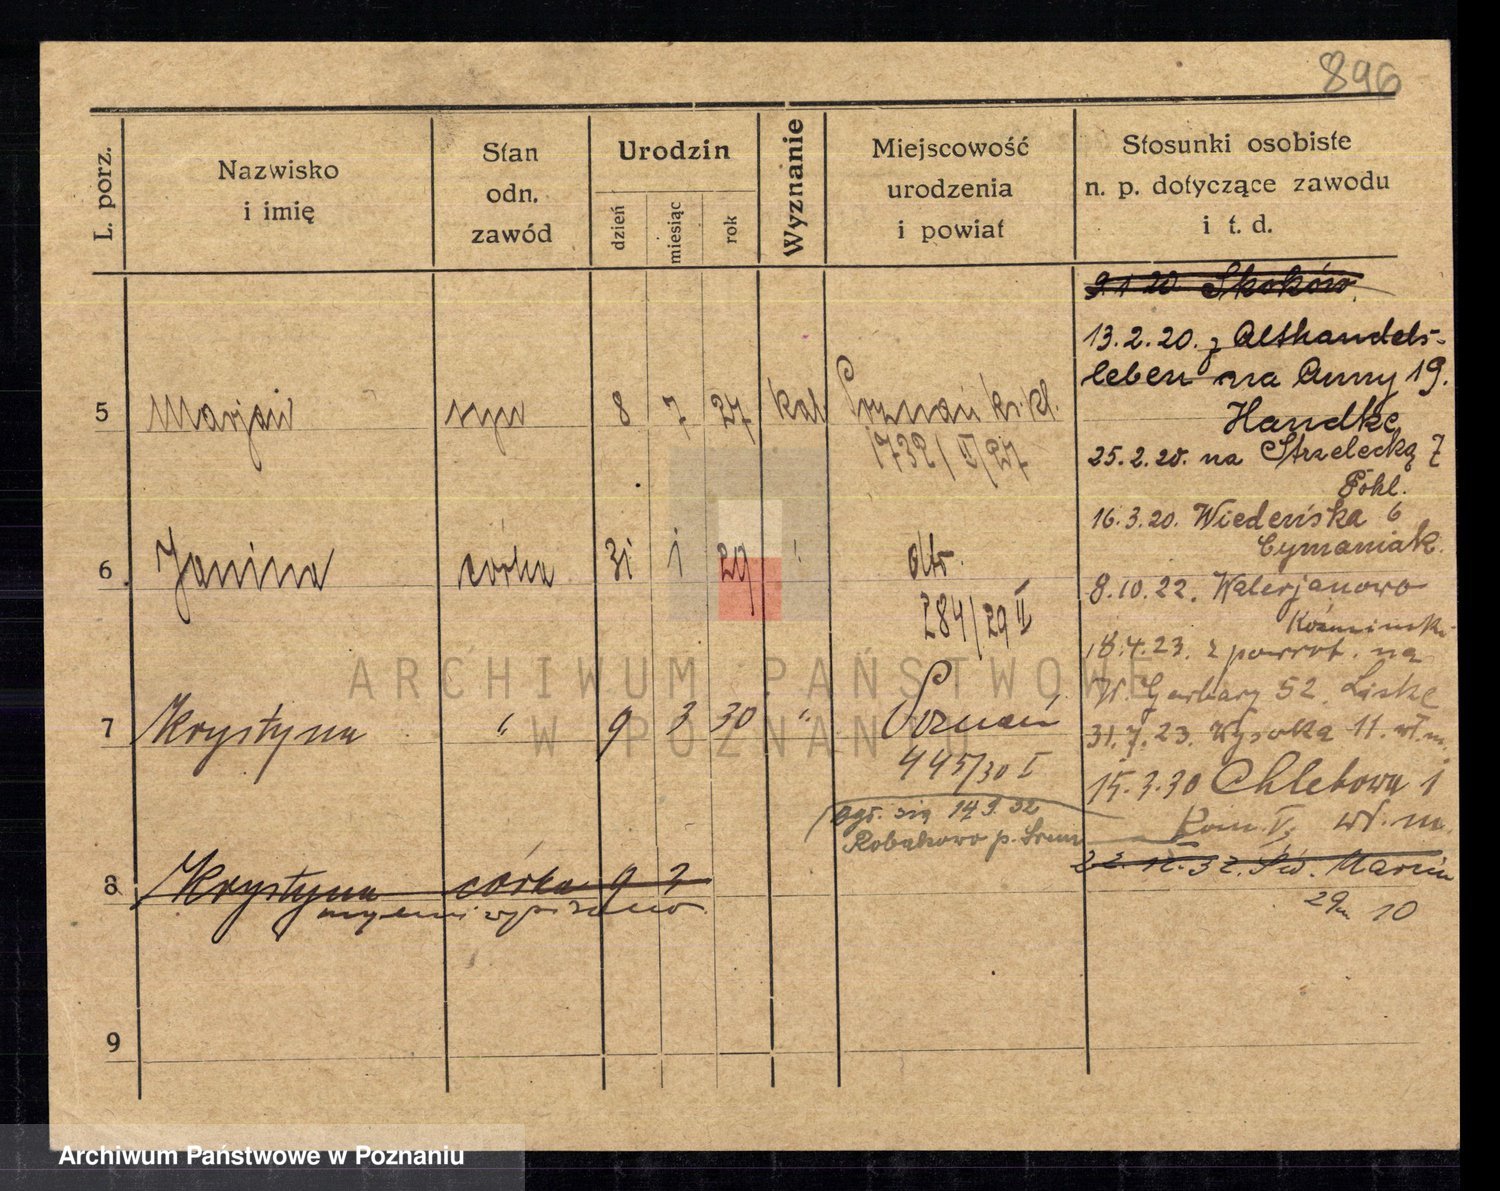 896
L. porz.
Nazwisko
i imię
Stan
odn.
zawód
Urodzin
dzień
miesiąc
rok
Wyznanie
Miejscowość
urodzenia
i powiat
Stosunki osobiste
n. p. dotyczące zawodu
i t. d.
9.1.20 Skoków.
13.2.20. z Althandels-
leben na Anny 19.
Handke
25.2.20. na Strzelecką 7
Pohl.
16.3.20. Wiedeńska 6
Cymaniak.
8.10.22. Walerjanowo
Koźmiński
18.4.23. z powrot. na
W. Garbary 52. Liske
31.7.23. Wysoka 11. wł. m.
15.3.30 Chlebowa 1
wł. m.
22.12.32. Św. Marcin
29 10
5 Marjan syn 8 7 27 kat Poznań
1732/II/27
6 Janina córka 31 1 29 "
284/29 II
7 Krystyna " 9 3 30 " Poznań
445/30 I
ogł. się 14 9. 32
Robakowo p. Śrem
8 Krystyna córka 9 3
mylnie wpisano
9
ARCHIWUM PAŃSTWOWE
W POZNANIU
Archiwum Państwowe w Poznaniu